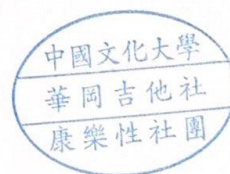 中國文化大學
華岡吉他社
康樂性社團